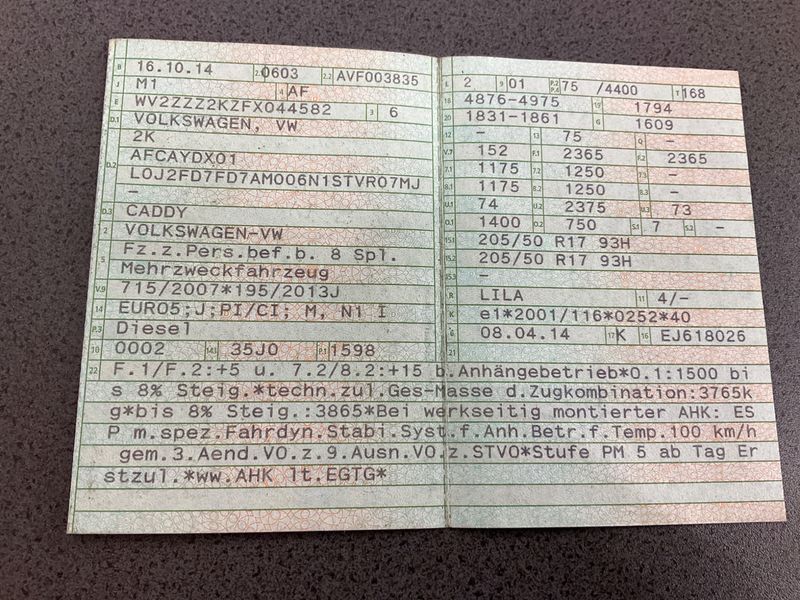 B 16.10.14 2.1 0603 2.2 AVF003835
J M1 4 AF
E WV2ZZZ2KZFX044582 3 6
D.1 VOLKSWAGEN, VW
2K
D.2 AFCAYDX01
L0J2FD7FD7AM006N1STVR07MJ
–
D.3 CADDY
2 VOLKSWAGEN-VW
5 Fz.z.Pers.bef.b. 8 Spl.
Mehrzweckfahrzeug
V.9 715/2007*195/2013J
14 EURO5;J;PI/CI; M, N1 I
P.3 Diesel
10 0002 14.1 35J0 P.1 1598
L 2 9 01 P.2 P.4 75 /4400 T 168
18 4876-4975 19 1794
20 1831-1861 G 1609
12 – 13 75 Q –
V.7 152 F.1 2365 F.2 2365
7.1 1175 7.2 1250 7.3 –
8.1 1175 8.2 1250 8.3 –
U.1 74 U.2 2375 U.3 73
O.1 1400 O.2 750 S.1 7 S.2 –
15.1 205/50 R17 93H
15.2 205/50 R17 93H
15.3 –
R LILA 11 4/–
K e1*2001/116*0252*40
6 08.04.14 17 K 16 EJ618026
21
22 F.1/F.2:+5 u. 7.2/8.2:+15 b.Anhängebetrieb*O.1:1500 bi
s 8% Steig.*techn.zul.Ges-Masse d.Zugkombination:3765k
g*bis 8% Steig.:3865*Bei werkseitig montierter AHK: ES
P m.spez.Fahrdyn.Stabi.Syst.f.Anh.Betr.f.Temp.100 km/h
gem.3.Aend.VO.z.9.Ausn.VO.z.STVO*Stufe PM 5 ab Tag Er
stzul.*ww.AHK lt.EGTG*